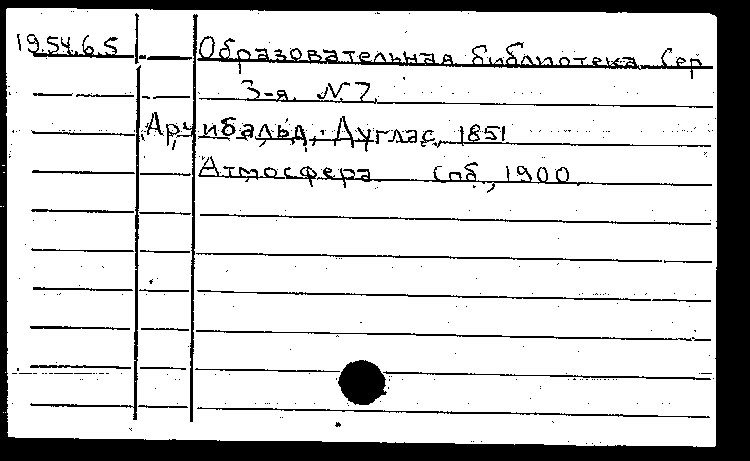 19.54.6.5 Образовательная библиотека Сер
3-я. №7.
Арчибальд, Дуглас, 1851
Атмосфера Спб, 1900